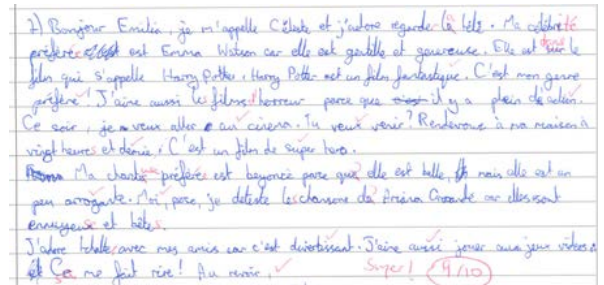 1) Bonjour Emilia, je m'appelle Céleste et j'adore regarder la télé. Ma célébrité
préférée est Emma Watson car elle est gentille et genereuse. Elle est dans le
film qui s'appelle Harry Potter. Harry Potter est un film fantastique. C'est mon genre
préféré! J'aime aussi les films d'horreur parce que il y a plein d'action.
Ce soir, je veux aller au cinema. Tu veux venir? Rendevous à ma maison à
vingt heures et demie. C'est un film de super hero.
Ma chanteuse préférée est beyoncé parce que elle est belle, mais elle est un
peu arrogante. Moi, je déteste les chansons de Ariana Grande car elles sont
ennuyeuses et bêtes.
J'adore avec mes amis car c'est divertissant. J'aime aussi jouer aux jeux videos.
Ça me fait rire! Au revoir,
Super! 9/10